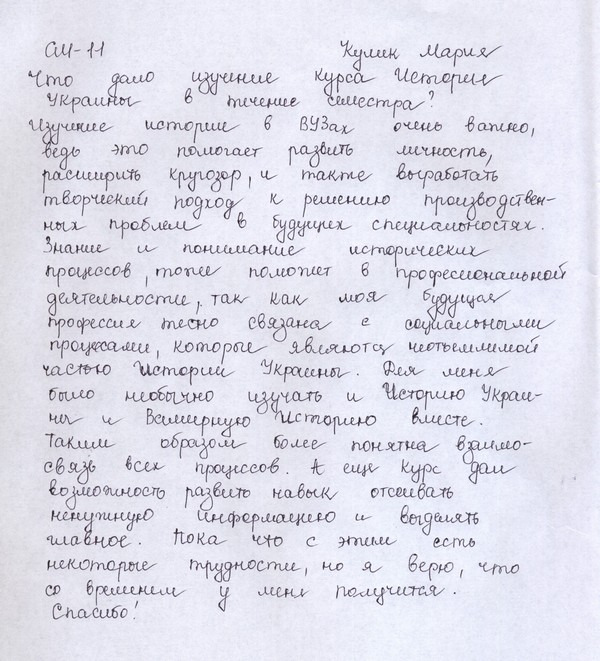 СМ-11 Кулик Мария
Что дало изучение курса Истории
Украины в течение семестра?
Изучение истории в ВУЗах очень важно,
ведь это помогает развить личность,
расширить кругозор, и также выработать
творческий подход к решению производствен-
ных проблем в будущих специальностях.
Знание и понимание исторических
процессов, тоже поможет в профессиональной
деятельности, так как моя будущая
профессия тесно связана с социальными
процессами, которые являются неотъемлимой
частью Истории Украины. Для меня
было необычно изучать и Историю Украи-
ны и Всемирную Историю вместе.
Таким образом более понятна взаимо-
связь всех процессов. А еще курс дал
возможность развить навык отсеивать
ненужную информацию и выделять
главное. Пока что с этим есть
некоторые трудности, но я верю, что
со временем у меня получится.
Спасибо!